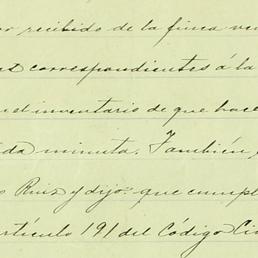 or recibido de la finca ven
as correspondientes á la
n el inventario de que hace
da minuta. También
Ruiz y dijo: que cumpl
artículo 191 del Código Civ